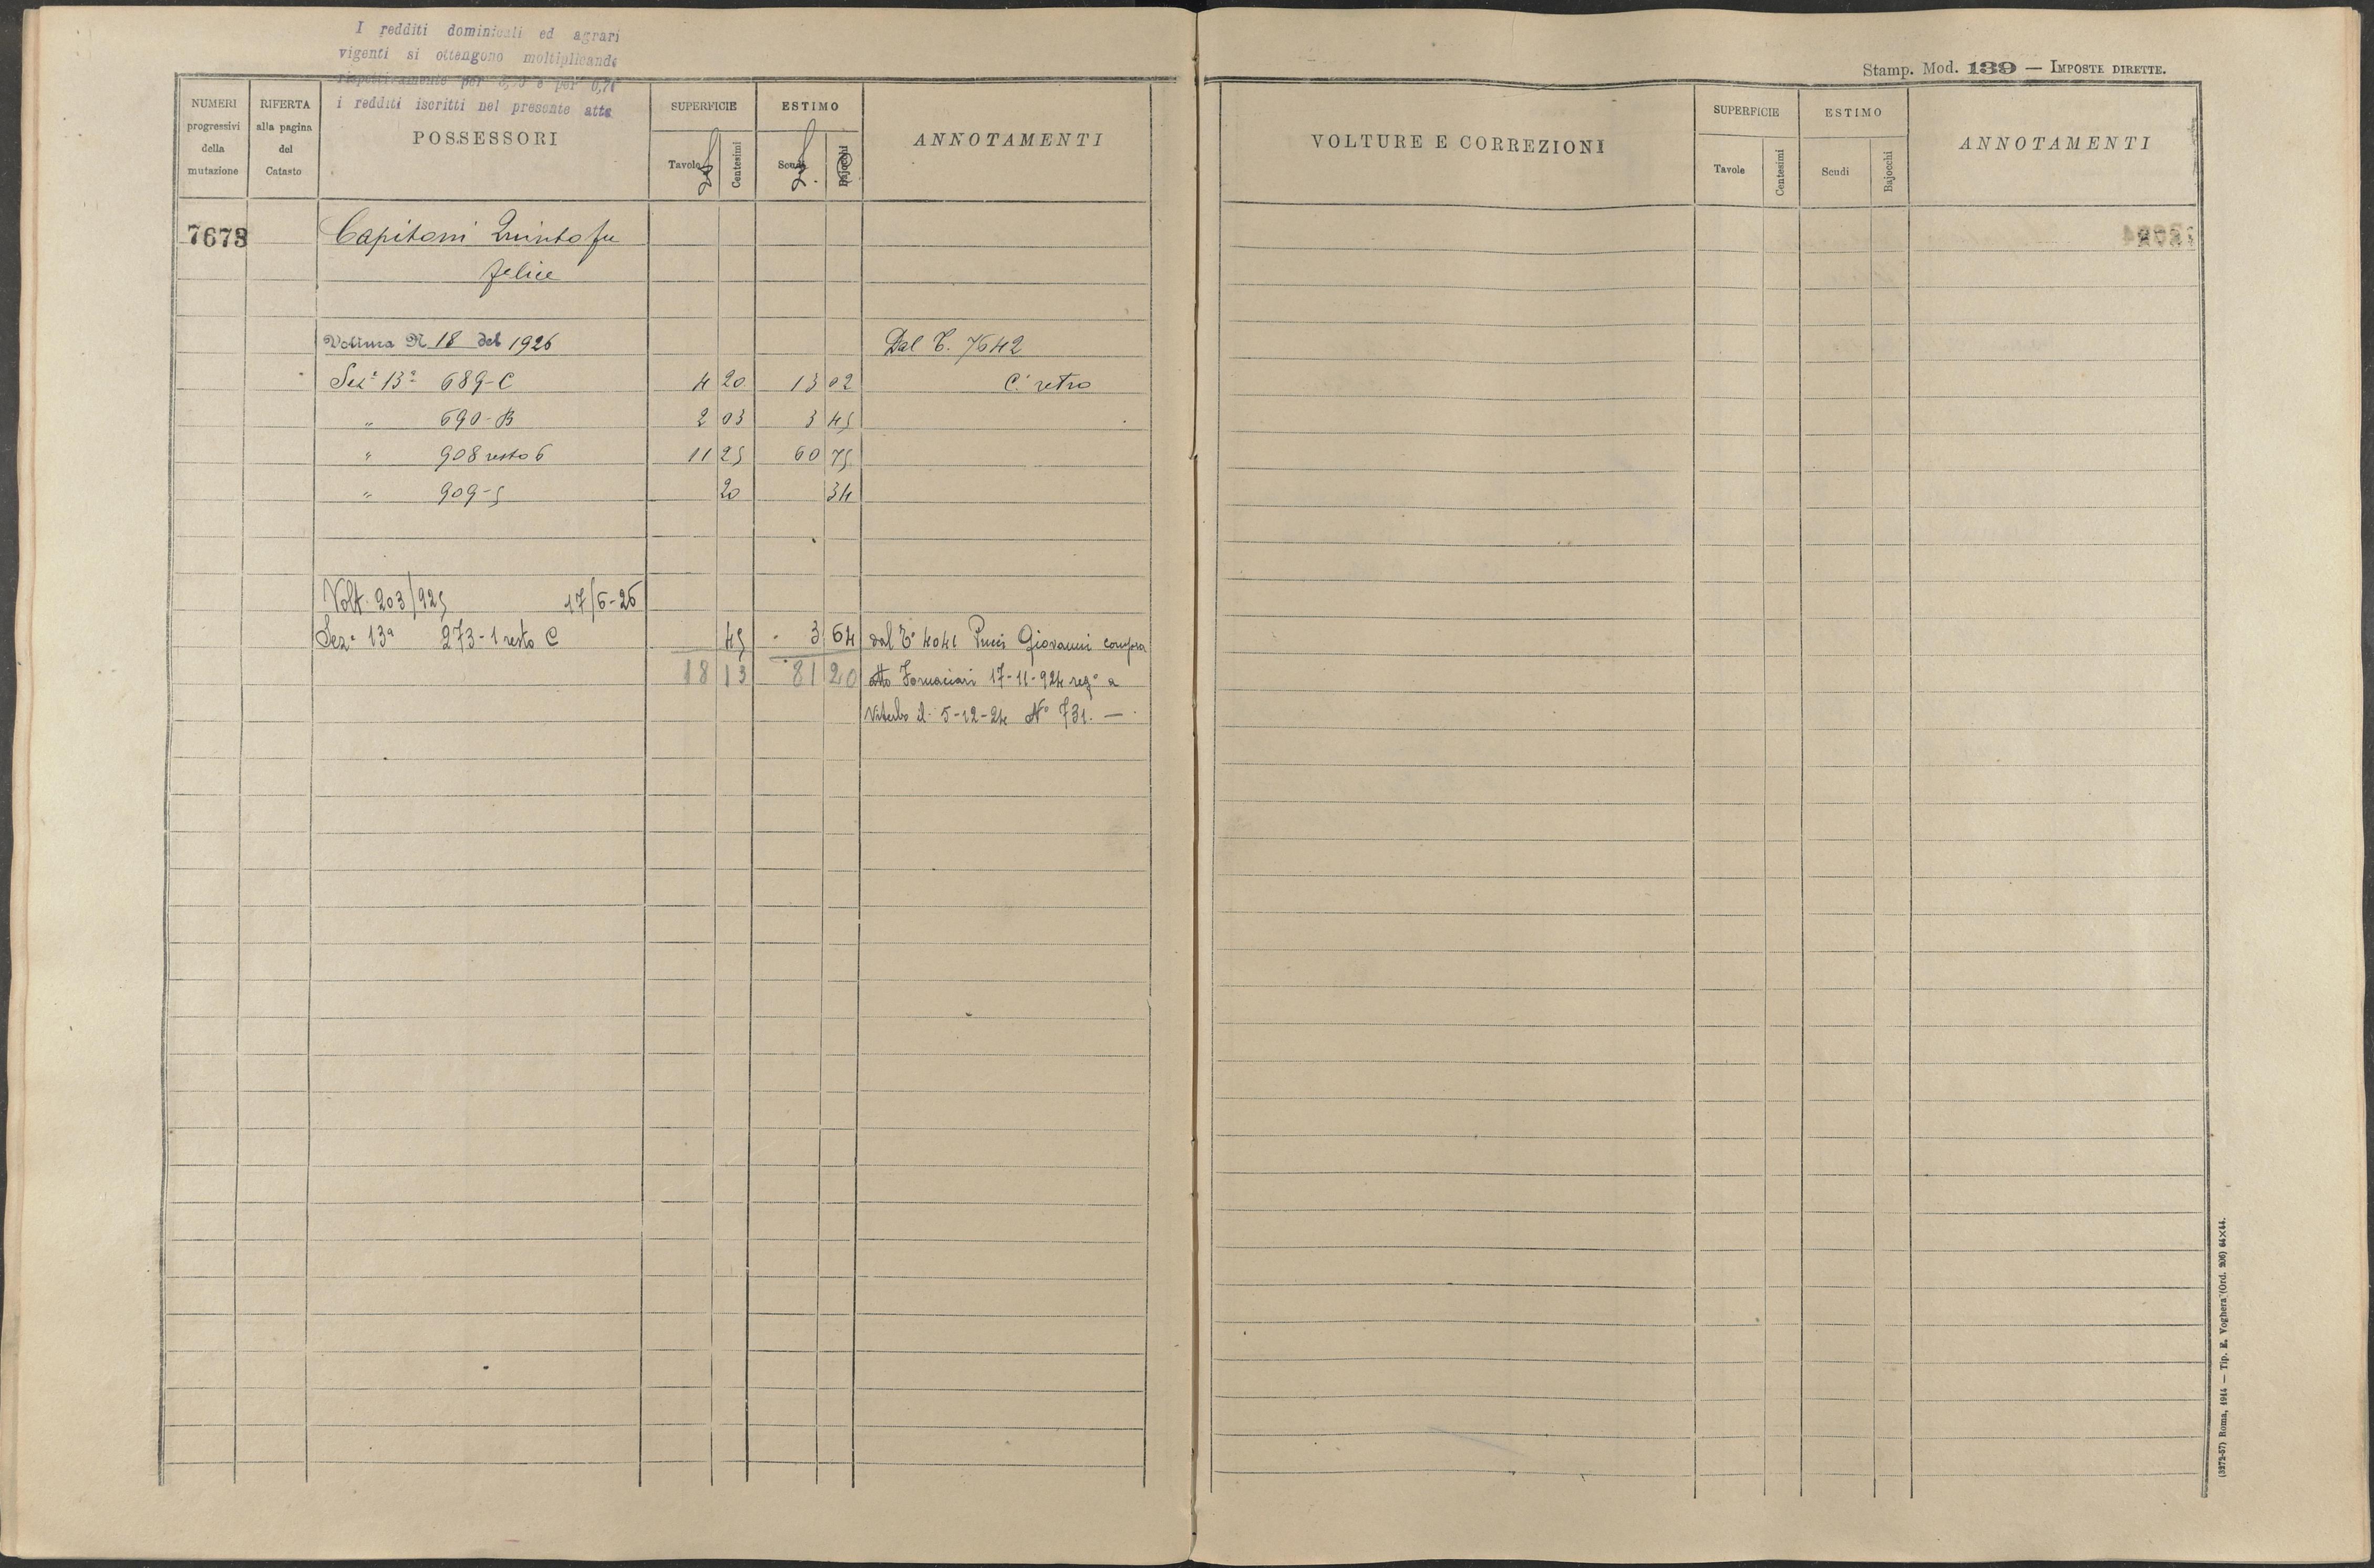 I redditi dominicali ed agrari
vigenti si ottengono moltiplicando
rispettivamente per e per
i redditi iscritti nel presente atto
NUMERI progressivi della mutazione
RIFERTA alla pagina del Catasto
POSSESSORI
SUPERFICIE
Tavole
Centesimi
ESTIMO
Scudi
Bajocchi
ANNOTAMENTI
7673
Capitoni Quinto fu
Felice
Voltura N 18 del 1926 Dal T. 7642
Sez.ª 13ª 689-C 4 20 13 02 C. retro
" 690-B 2 03 3 45
" 908 resto 6 11 25 60 75
" 909-5 20 34
Volt. 203/925 17/6-26
Sez.ª 13ª 273-1 resto C 45 3 64 dal T° 4041 Pucci Giovanni compra
18 13 81 20 atto Fornaciari 17-11-924 reg° a
Viterbo il 5-12-24 N° 731. —
Stamp. Mod. 139 — IMPOSTE DIRETTE.
VOLTURE E CORREZIONI
SUPERFICIE
Tavole
Centesimi
ESTIMO
Scudi
Bajocchi
ANNOTAMENTI
(3272-57) Roma, 1914 — Tip. E. Voghera (Ord. 206) 64×44.